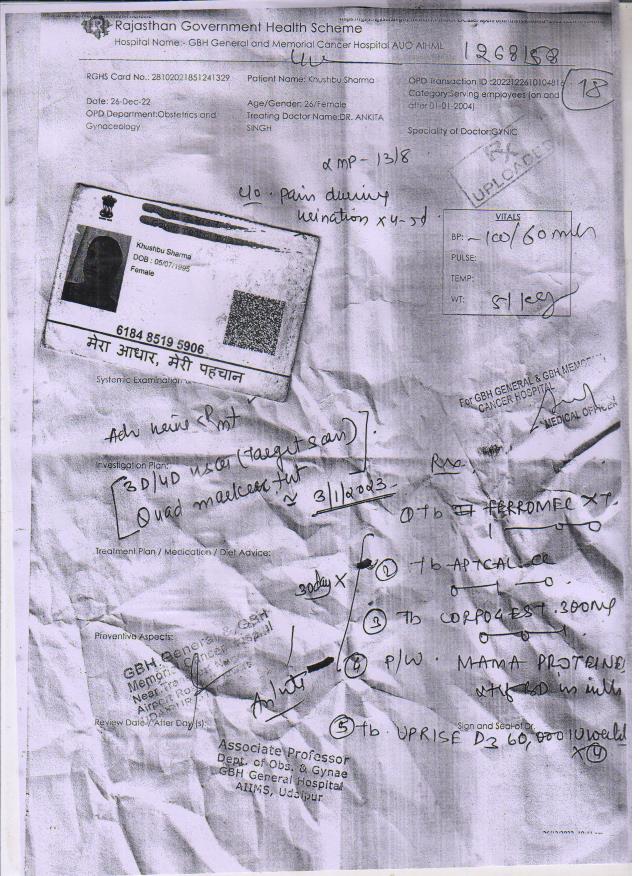 Rajasthan Government Health Scheme
Hospital Name:- GBH General and Memorial Cancer Hospital AUO AIHML
1268158
RGHS Card No.: 28102021851241329
Patient Name: Khushbu Sharma
OPD Transaction ID :2022122610104816
18
Date: 26-Dec-22
Age/Gender: 26/Female
Category:Serving employees (on and
after 01-01-2004)
OPD Department:Obstetrics and
Gynaecology
Treating Doctor Name:DR. ANKITA
SINGH
Speciality of Doctor:GYNIC
UPLOADED
LMP - 13/8
c/o. pain during
urination x 4-5d
VITALS
BP: 100/60
PULSE:
TEMP:
WT: 51 kg
Khushbu Sharma
DOB : 05/07/1995
Female
6184 8519 5906
मेरा आधार, मेरी पहचान
Systemic Examination
For GBH GENERAL & GBH MEMORIAL
CANCER HOSPITAL
MEDICAL OFFICER
Adv urine
Investigation Plan:
3D/4D (Target scan)
Quad marker
3/1/2023
① Tb FERROMEC XT
Treatment Plan / Medication / Diet Advice:
30day X
② Tb APTCAL-CC
③ Tb CORPOGEST 300mg
Preventive Aspects:
④ P/W. MAMA PROTEINEX
BD in milk
GBH General & GBH
Memorial Cancer Hospital
Airport Road
Review Date / After Day(s):
Sign and Seal of Dr.
⑤ Tb. UPRISE D3 60,000 IU
X ④
Associate Professor
Dept. of Obs. & Gynae
GBH General Hospital
AIIMS, Udaipur